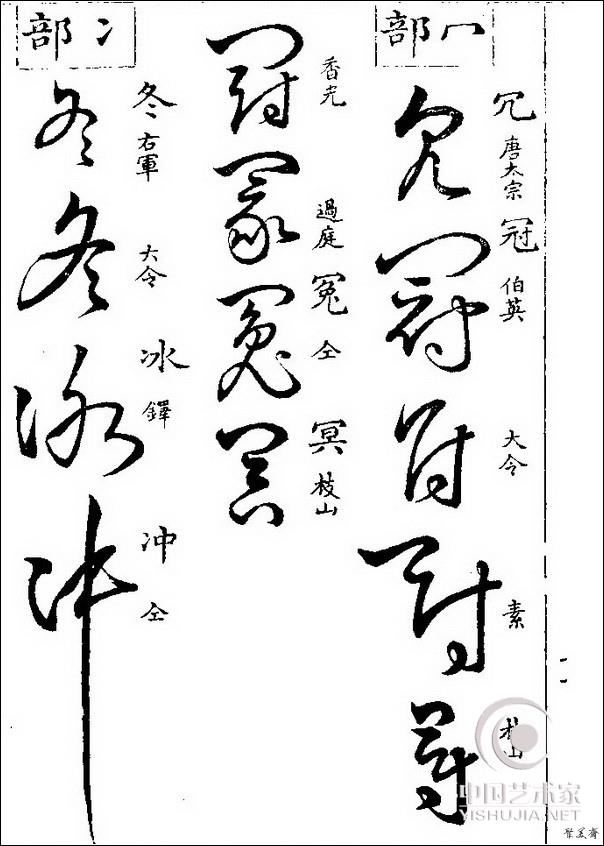 冖部
冗 唐太宗 冠 伯英 大令 素 枝山
冗 冠 冠 冠 冠
香光 過庭 冤 仝 冥 枝山
冠 冤 冥
冫部
冬 右軍 大令 冰 鐸 冲 仝
冬 冬 冰 冲
中国艺术家
YISHUJIA.NET